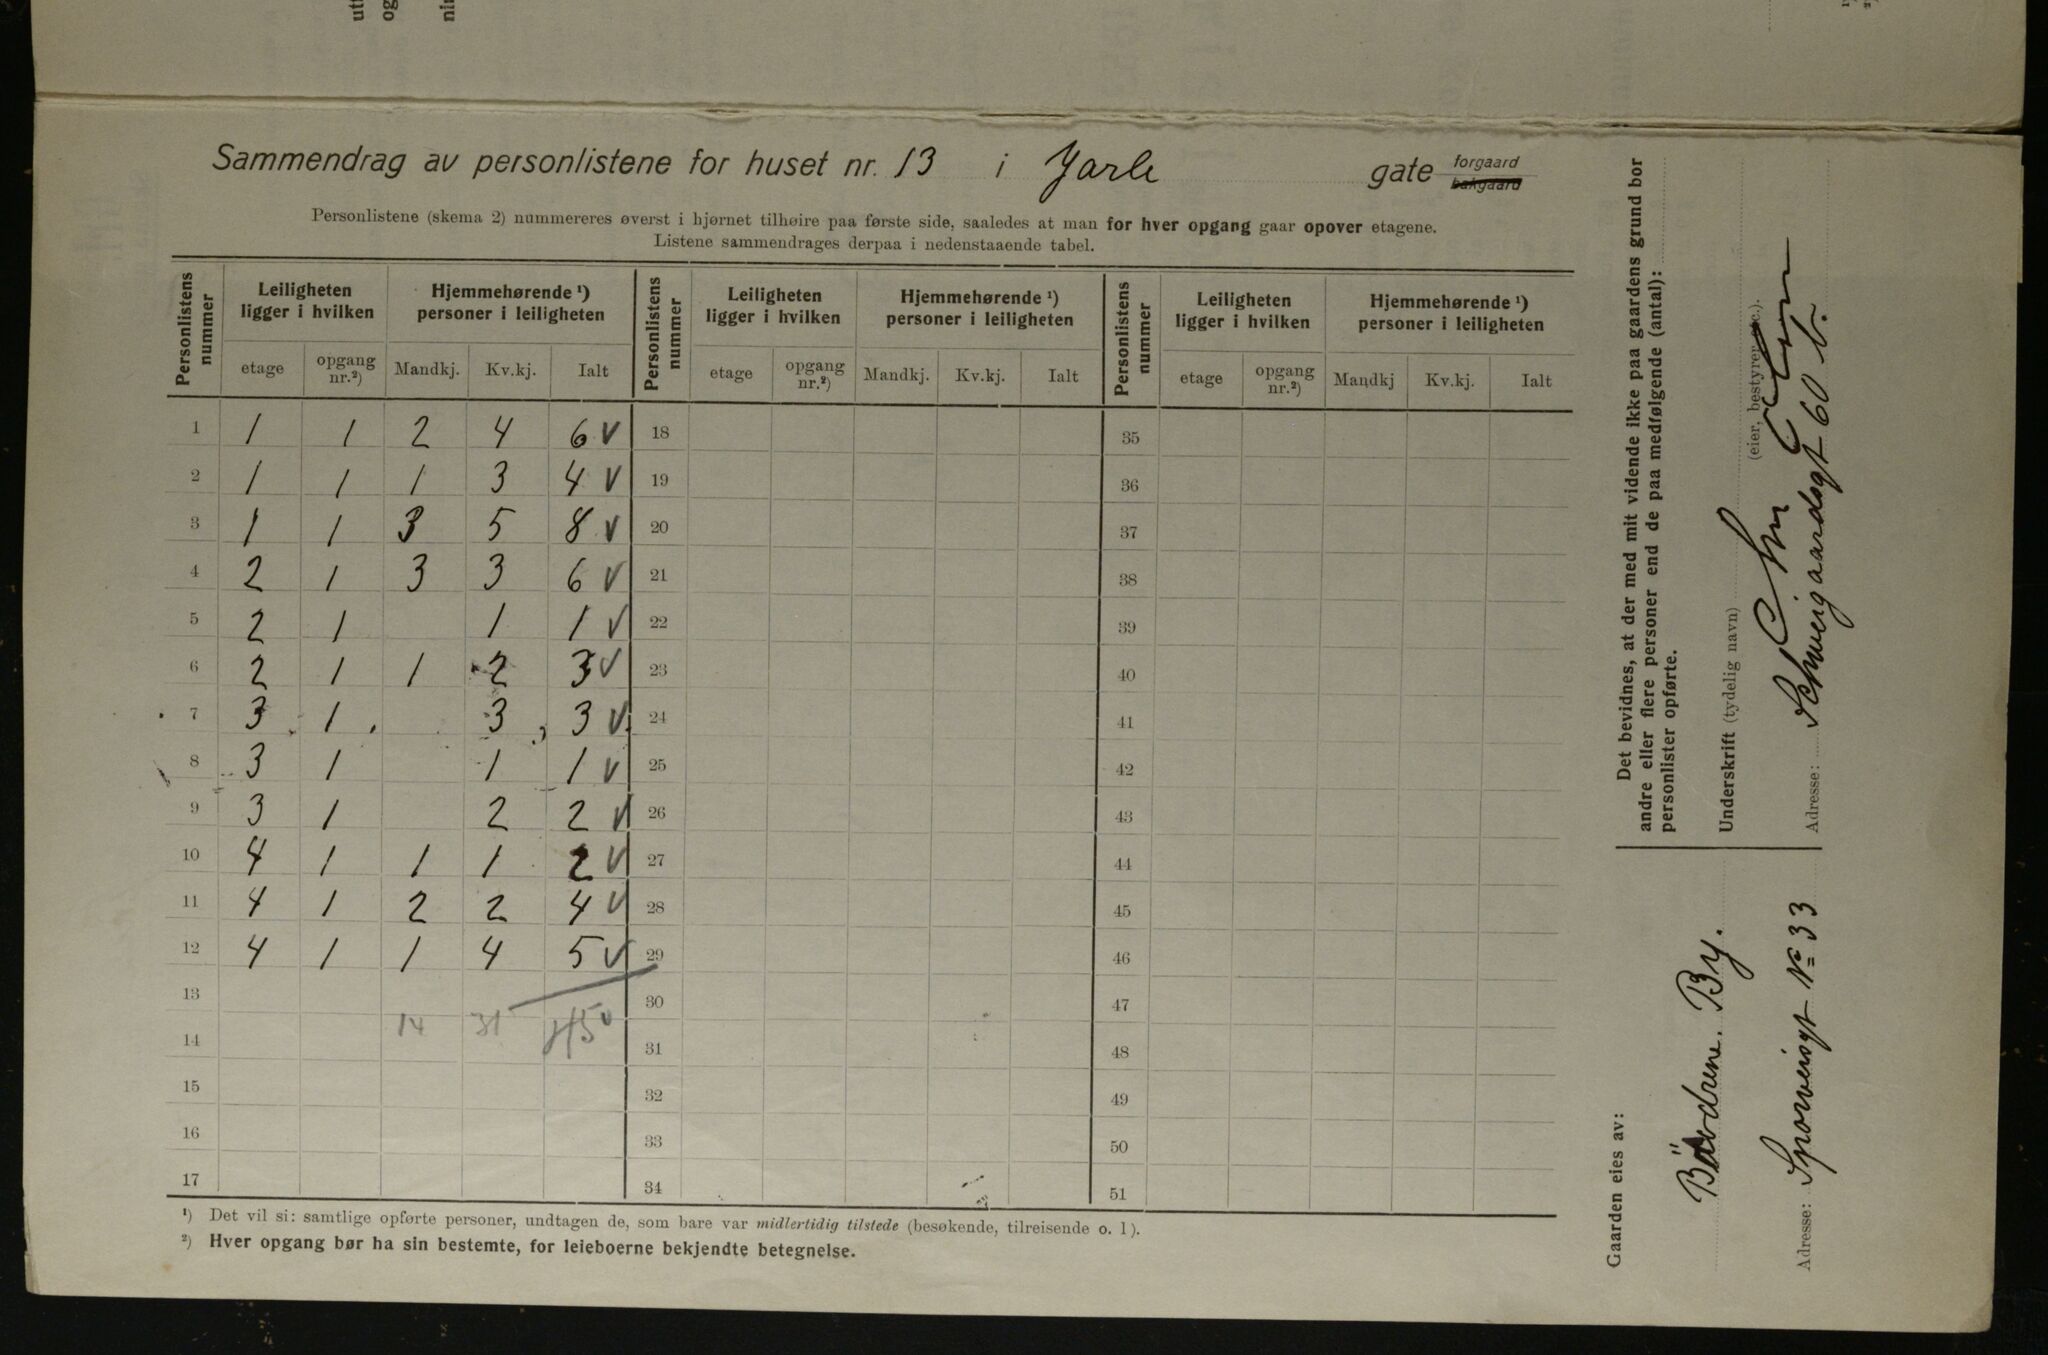 utt
og
nin
Sammendrag av personlistene for huset nr. 13 i Jarle gate forgaard bakgaard
Personlistene (skema 2) nummereres øverst i hjørnet tilhøire paa første side, saaledes at man for hver opgang gaar opover etagene.
Listene sammendrages derpaa i nedenstaaende tabel.
Personlistens nummer | Leiligheten ligger i hvilken | Hjemmehørende ¹) personer i leiligheten | Personlistens nummer | Leiligheten ligger i hvilken | Hjemmehørende ¹) personer i leiligheten | Personlistens nummer | Leiligheten ligger i hvilken | Hjemmehørende ¹) personer i leiligheten
etage | opgang nr.²) | Mandkj. | Kv.kj. | Ialt | etage | opgang nr.²) | Mandkj. | Kv.kj. | Ialt | etage | opgang nr.²) | Mandkj | Kv.kj. | Ialt
1 1 1 2 4 6 v 18 35
2 1 1 1 3 4 v 19 36
3 1 1 3 5 8 v 20 37
4 2 1 3 3 6 v 21 38
5 2 1 1 1 v 22 39
6 2 1 1 2 3 v 23 40
7 3 1 3 3 v 24 41
8 3 1 1 1 v 25 42
9 3 1 2 2 v 26 43
10 4 1 1 1 2 v 27 44
11 4 1 2 2 4 v 28 45
12 4 1 1 4 5 v 29 46
13 30 47
14 14 31 45 v 31 48
15 32 49
16 33 50
17 34 51
¹) Det vil si: samtlige opførte personer, undtagen de, som bare var midlertidig tilstede (besøkende, tilreisende o. l).
²) Hver opgang bør ha sin bestemte, for leieboerne bekjendte betegnelse.
Det bevidnes, at der med mit vidende ikke paa gaardens grund bor
andre eller flere personer end de paa medfølgende (antal):
personlister opførte.
Underskrift (tydelig navn)
(eier, bestyrer etc.).
Adresse: Schweigaardsgt 60 b.
Gaarden eies av:
Brødrene. By.
Adresse: Sporveisgt No 33